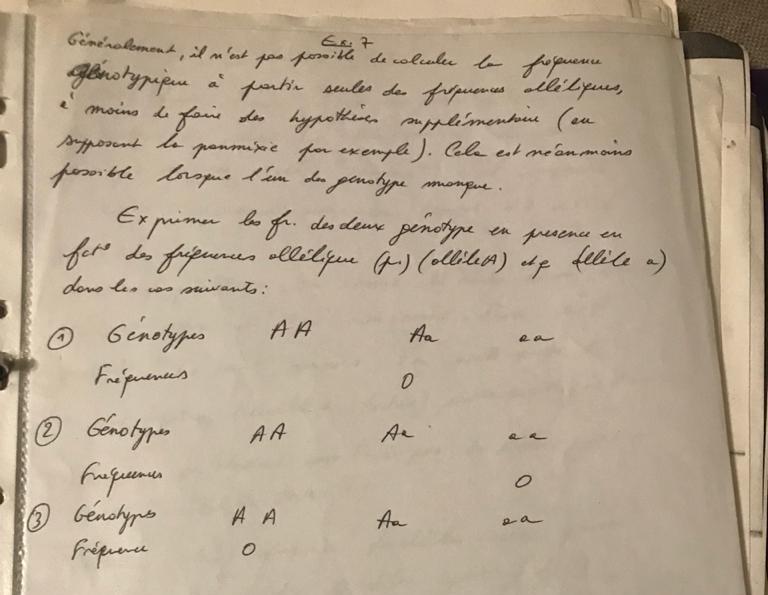 Ex. 7
Généralement, il n'est pas possible de calculer la fréquence
génotypique à partir seules des fréquences alléliques,
à moins de faire des hypothèses supplémentaire (en
supposant la panmixie par exemple). Cela est néanmoins
possible lorsque l'un des genotype manque.
Exprimer les fr. des deux génotype en presence en
fct° des fréquences allélique (p.) (allèle A) et q (allèle a)
dans les cas suivants :
① Génotypes AA Aa aa
Fréquences 0
② Génotypes AA Aa aa
Fréquences 0
③ Génotypes AA Aa aa
Fréquence 0